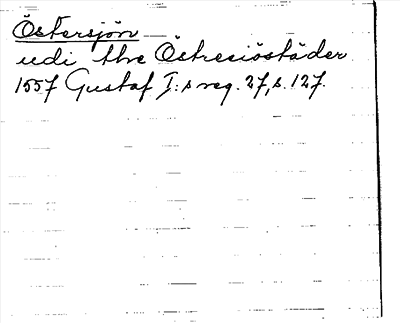 Östersjön
udi thre Östresiöstäder
1557 Gustaf I:s reg. 27, s. 127.